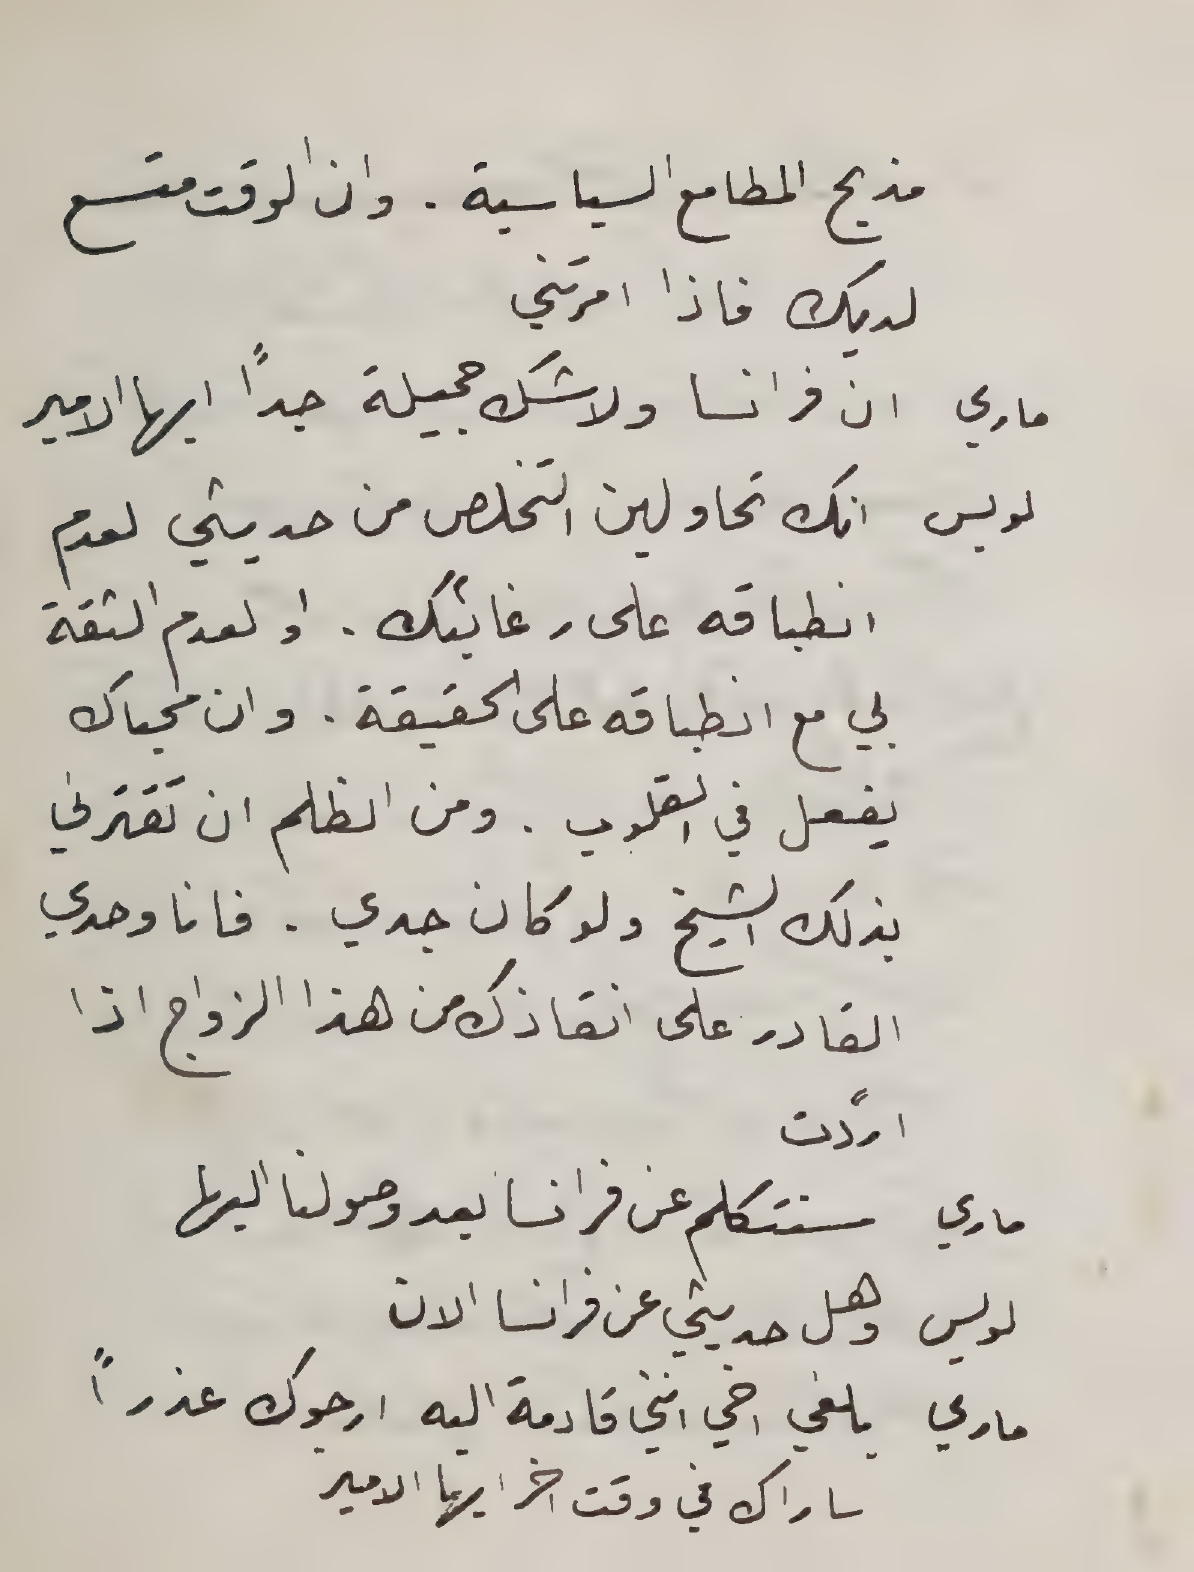 مذبح المطامع السياسية . وان الوقت متسع
لديك فاذا امرتني
ماري ان فرانسا ولاشك جميلة جداً ايها الامير
لويس انك تحاولين التخلص من حديثي لعدم
انطباقه على رغائبك . او لعدم الثقة
بي مع انطباقه على الحقيقة . وان محياك
يفعل في القلوب . ومن الظلم ان تقترني
بذلك الشيخ ولو كان جدي . فانا وحدي
القادر على انقاذك من هذا الزواج اذا
اردت
ماري سنتكلم عن فرانسا بعد وصولنا اليها
لويس وهل حديثي عن فرانسا الان
ماري بلغي اخي انني قادمة اليه ارجوك عذراً
ساراك في وقت اخر ايها الامير